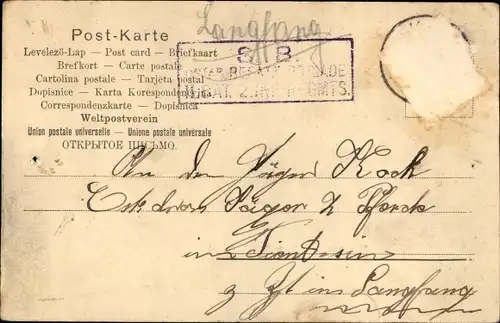 Langfang
Post-Karte
Levelező-Lap — Post card — Briefkaart
Brefkort — Carte postale
Cartolina postale — Tarjeta postal
Dopisnice — Karta Korespondencyjna
Correspondenzkarte — Dopisnica
Weltpostverein
Union postale universelle — Unione postale universale
ОТКРЫТОЕ ПИСЬМО.
S. B.
BRIGADE
II. BAT. 2. INF. REGMTS.
An den Jäger Kock
Jäger z Pferde
in Tientsin
z Zt in Langfang